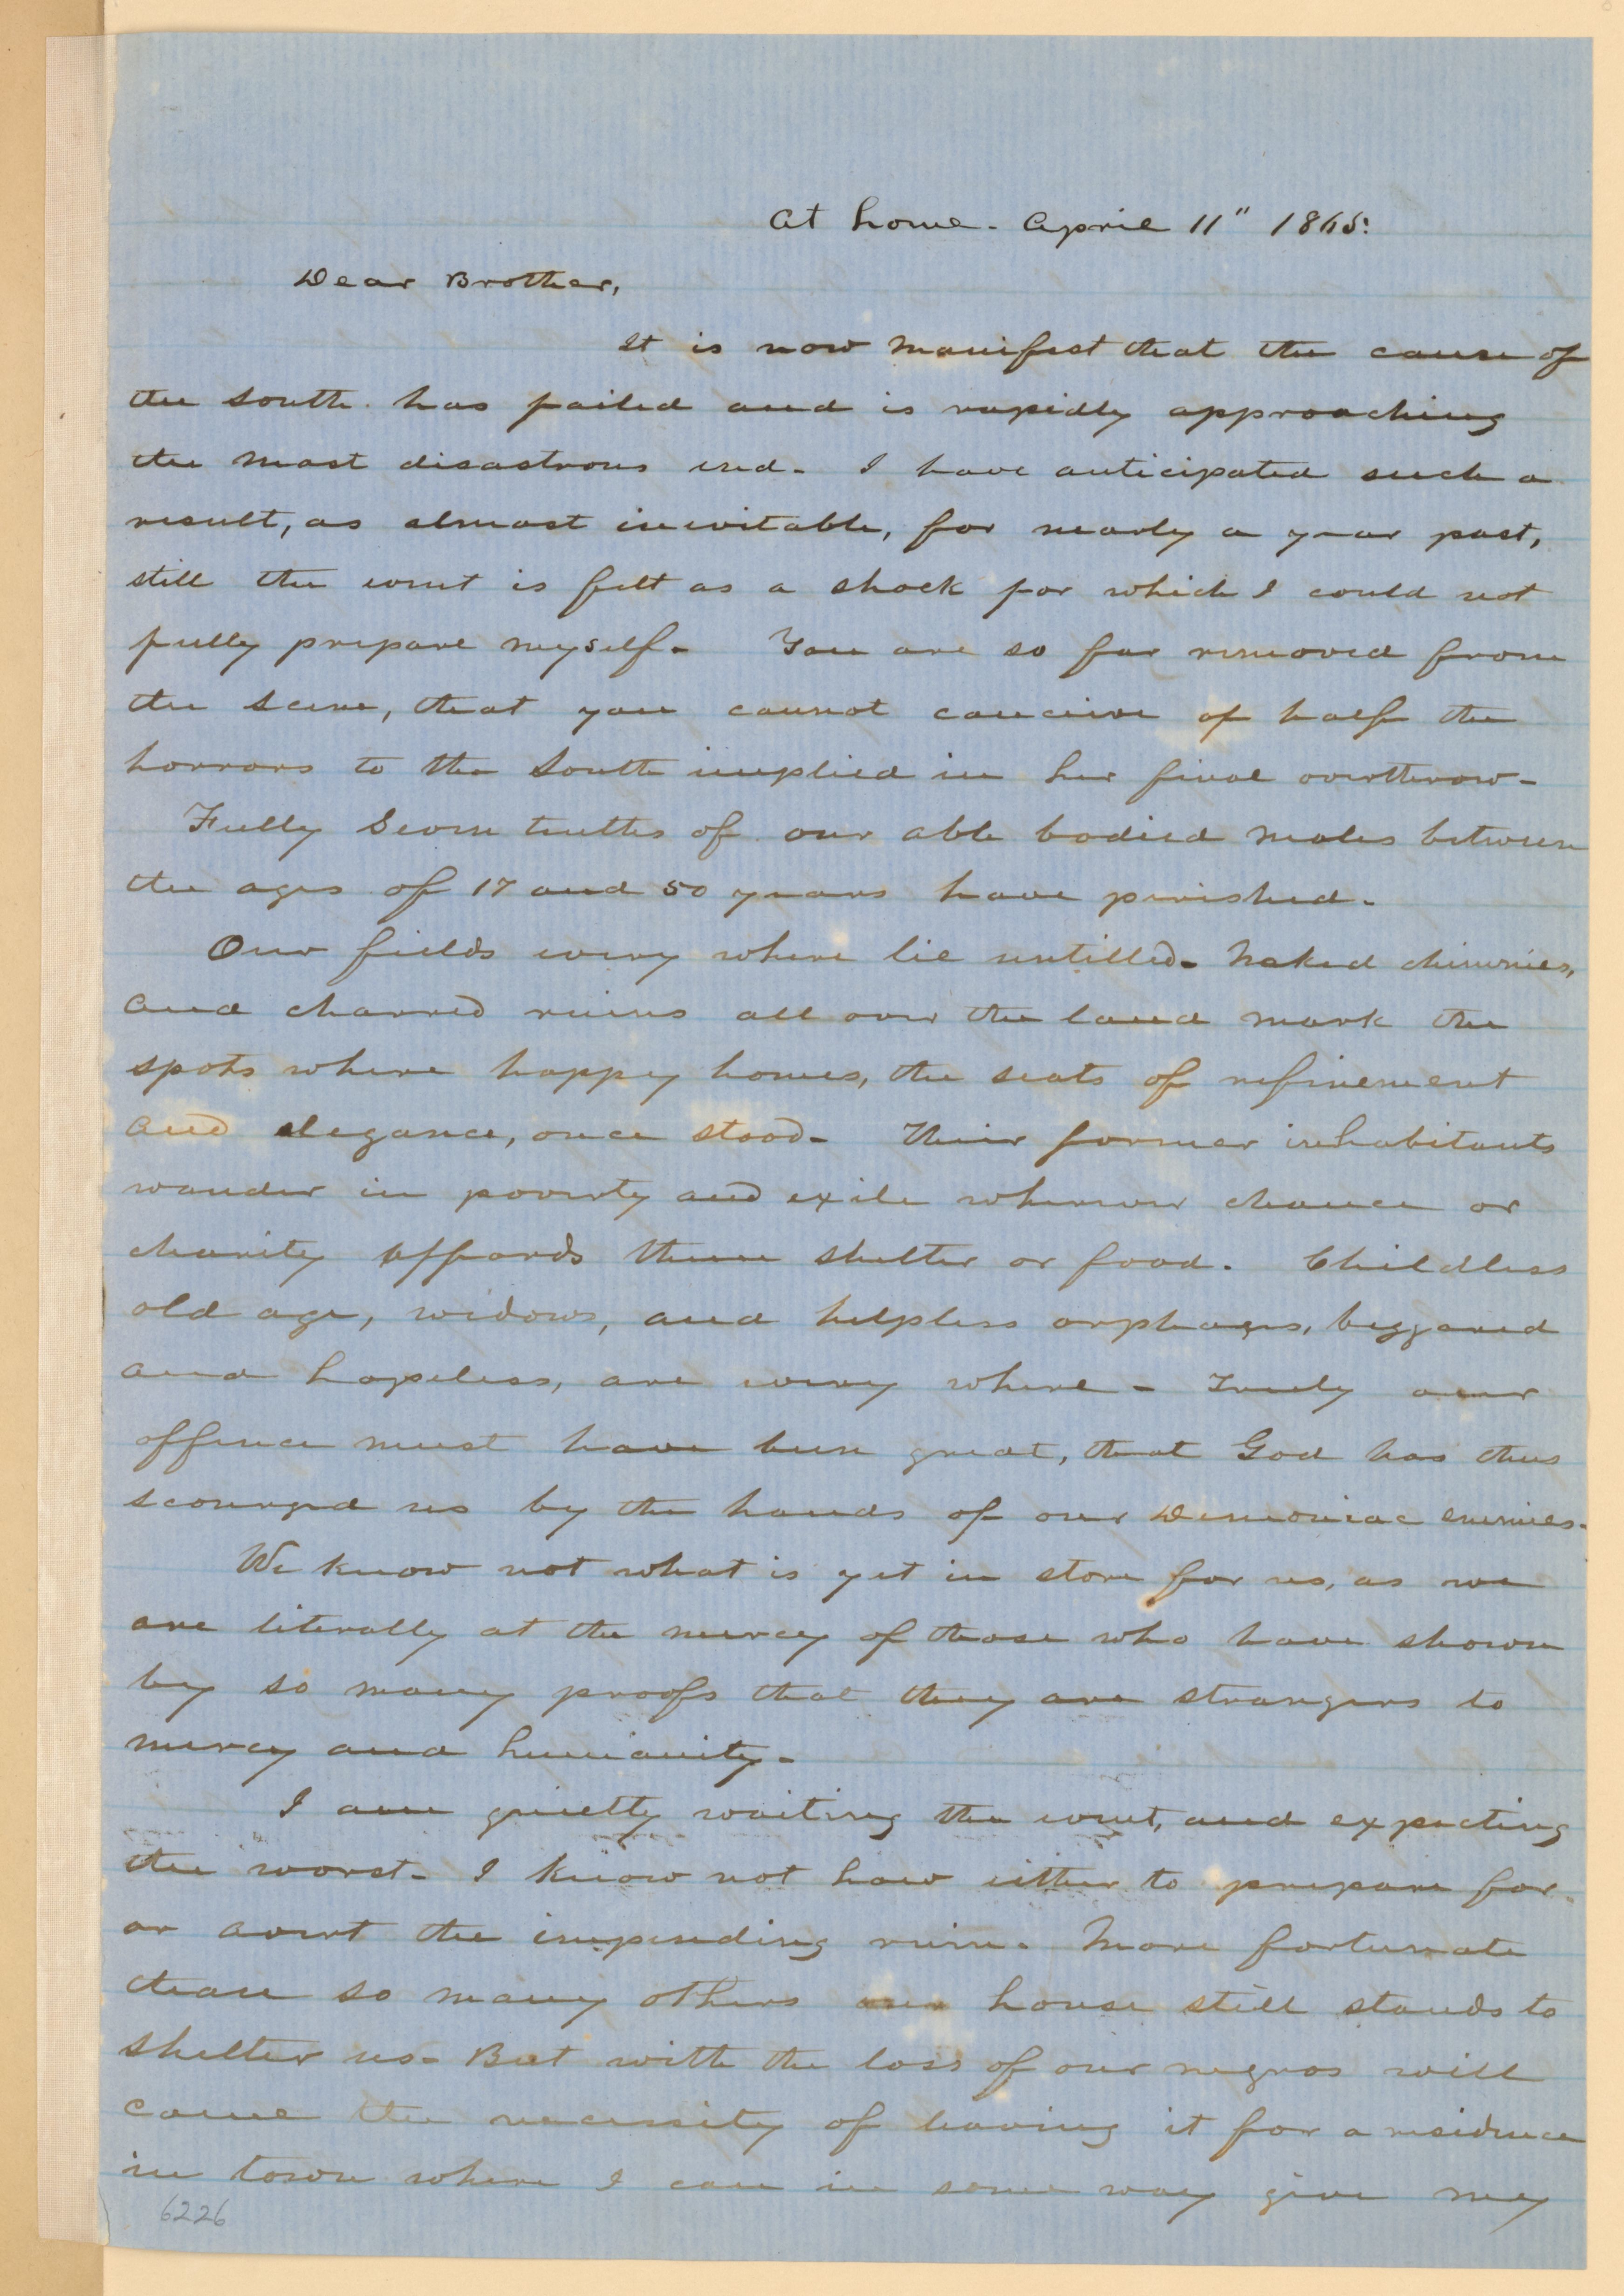 At home. April 11" 1865.
Dear Brother,
It is now manifest that the cause of
the South has failed and is rapidly approaching
the most disastrous end. I have anticipated such a
result, as almost inevitable, for nearly a year past,
still the event is felt as a shock for which I could not
fully prepare myself. You are so far removed from
the scene, that you cannot conceive of half the
horrors to the South implied in her final overthrow.
Fully Seven tenths of our able bodied males between
the ages of 17 and 50 years have perished.
Our fields every where lie untilled. Naked chimnies,
and charred ruins all over the land mark the
spots where happy homes, the seats of refinement
and elegance, once stood. Their former inhabitants
wander in poverty and exile wherever chance or
charity affords them shelter or food. Childless
old age, widows, and helpless orphans, beggared
and hopeless, are every where. Truly our
offence must have been great, that God has thus
scourged us by the hands of our Demoniac enemies.
We know not what is yet in store for us, as we
are literally at the mercy of those who have shown
by so many proofs that they are strangers to
mercy and humanity.
I am quietly waiting the event, and expecting
the worst. I know not how either to prepare for
or avert the impending ruin. More fortunate
than so many others our house still stands to
shelter us. But with the loss of our negros will
come the necessity of leaving it for a residence
in town where I can in some way give my
6226